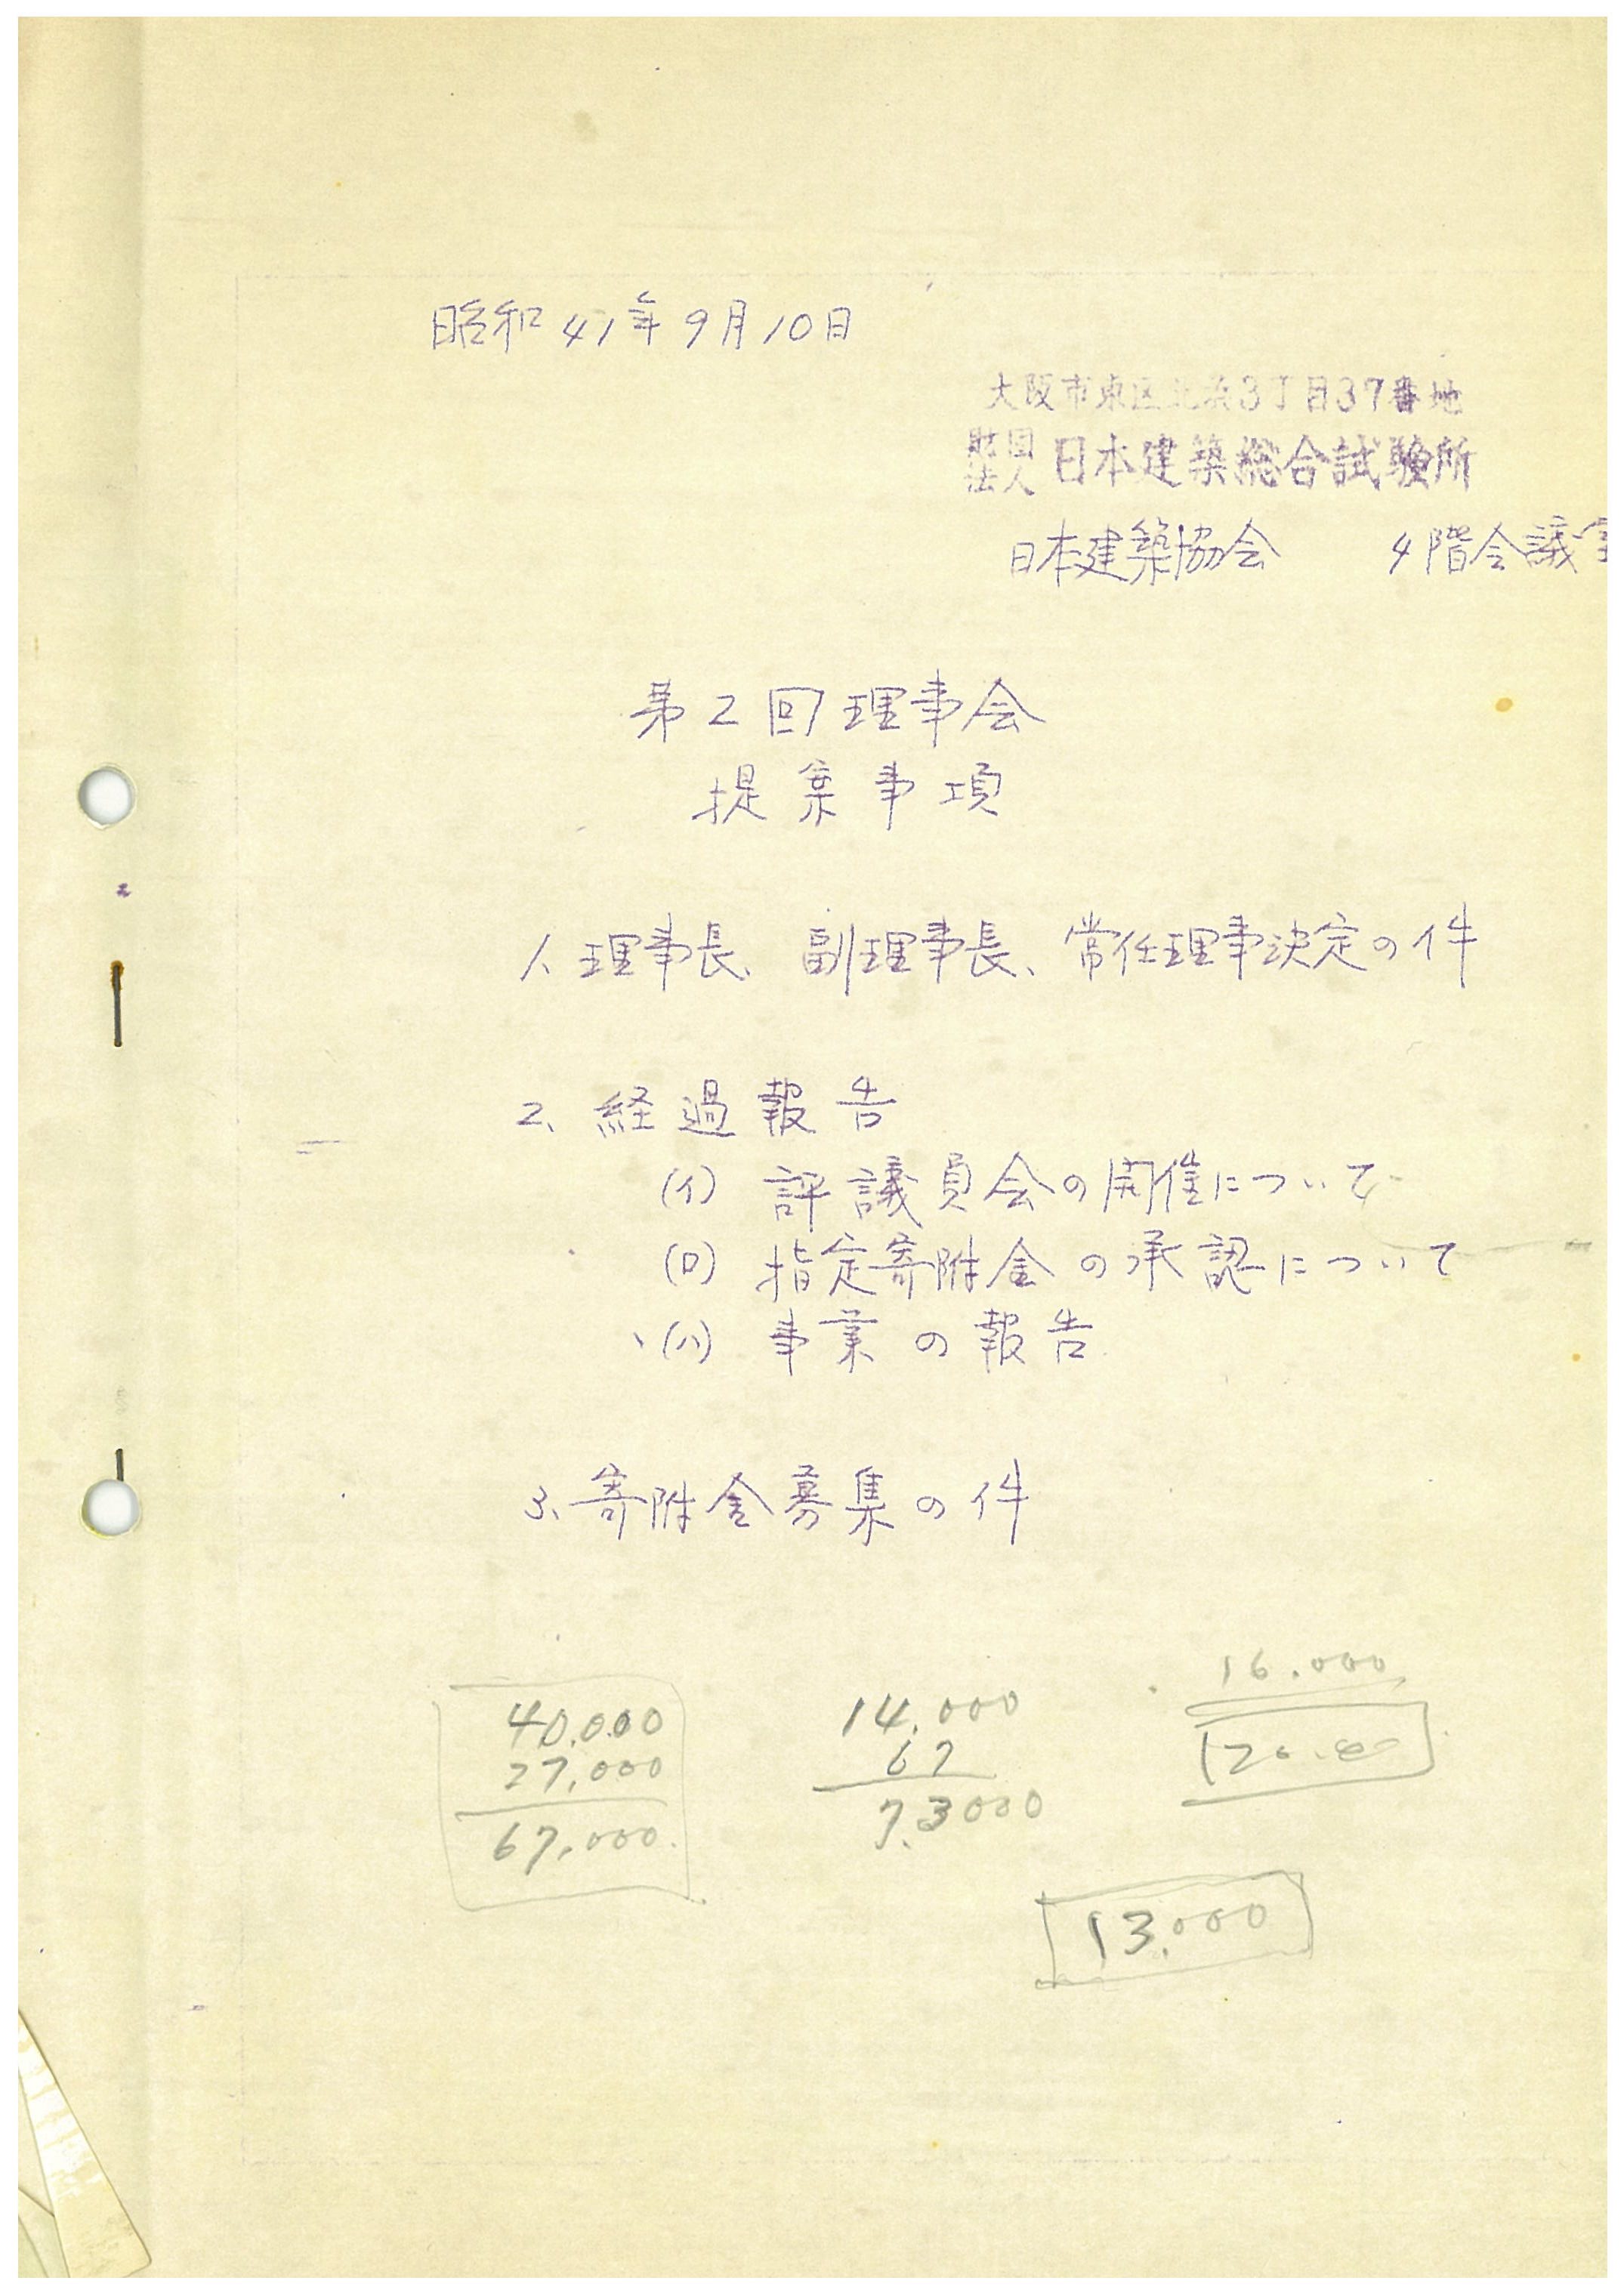 昭和41年9月10日
大阪市東区北浜3丁目37番地
財団法人 日本建築総合試験所
日本建築協会 4階会議室
第2回理事会
提案事項
1、理事長、副理事長、常任理事決定の件
2、経過報告
(イ) 評議員会の開催について
(ロ) 指定寄附金の承認について
(ハ) 事業の報告
3、寄附金募集の件
16.000
40.000
27,000
67,000
14.000
67
7.3000
13.000